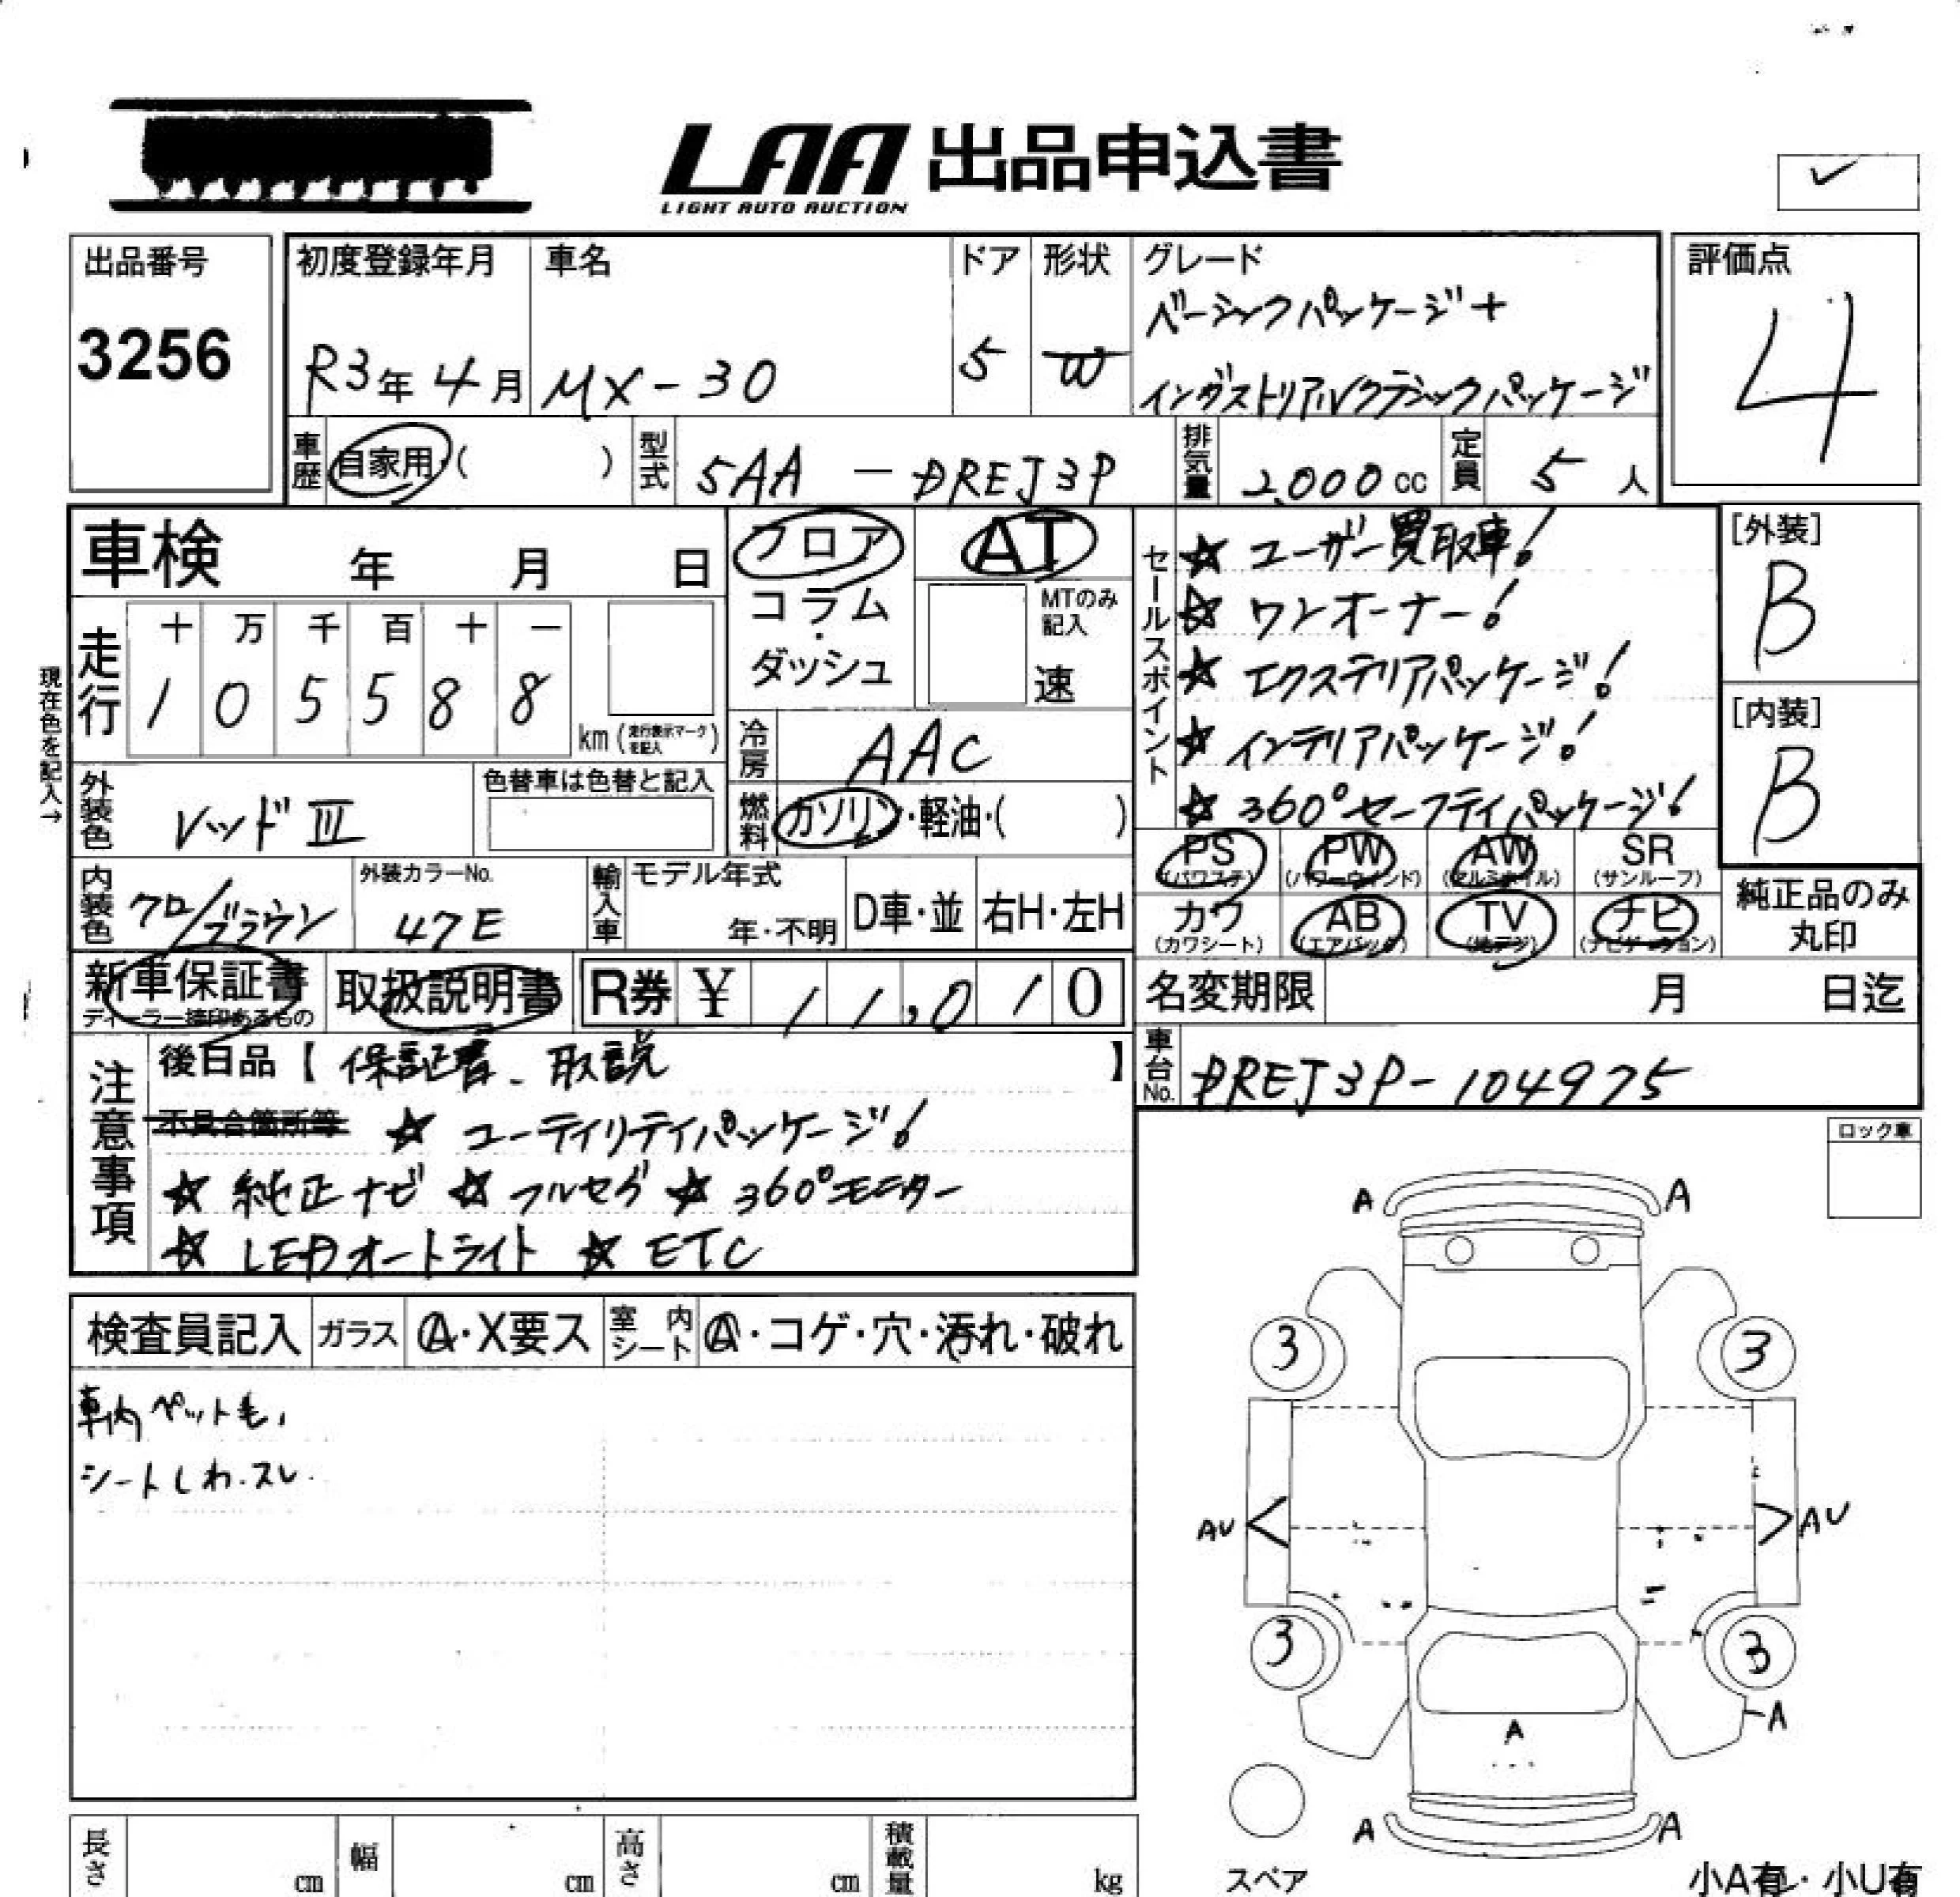 LAA 出品申込書
LIGHT AUTO AUCTION
出品番号
3256
初度登録年月
R3年 4月
車名
MX-30
ドア
5
形状
W
グレード
ベーシックパッケージ+
インダストリアルクラシックパッケージ
評価点
4
車歴 自家用・( )
型式 5AA-DREJ3P
排気量 2,000 cc
定員 5 人
車検 年 月 日
フロア
コラム
・
ダッシュ
AT
MTのみ
記入
速
走行
十 万 千 百 十 一
1 0 5 5 8 8
km (走行表示マークを記入)
現在色を記入→
冷房 AAC
外装色 レッドⅢ
色替車は色替と記入
燃料 ガソリン・軽油・( )
内装色 クロ/ブラウン
外装カラーNo.
47E
輸入車
モデル年式
年・不明
D車・並
右H・左H
新車保証書
ディーラー捺印あるもの
取扱説明書
R券 ¥ 11,010
セールスポイント
☆ ユーザー買取車!
☆ ワンオーナー!
☆ エクステリアパッケージ!
☆ インテリアパッケージ!
☆ 360°セーフティパッケージ!
[外装]
B
[内装]
B
PS PW AW SR
(パワステ) (パワーウインド) (アルミホイル) (サンルーフ)
カワ AB TV ナビ
(カワシート) (エアバック) (地デジ) (ナビゲーション)
純正品のみ
丸印
名変期限 月 日迄
車台No. DREJ3P-104975
注意事項
後日品【 保証書、取説 】
不具合箇所等 ☆ ユーティリティパッケージ!
☆ 純正ナビ ☆ フルセグ ☆ 360°モニター
☆ LEDオートライト ☆ ETC
ロック車
検査員記入
ガラス Ⓐ・X要ス
室内シート Ⓐ・コゲ・穴・汚れ・破れ
車内ペット毛、
シートしわ.スレ.
A A
3 3
AU AU
3 3
A
A
A A
スペア
小A有・小U有
長さ cm
幅 cm
高さ cm
積載量 kg